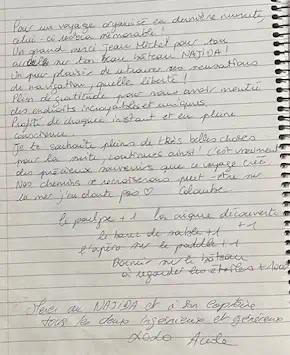 Pour un voyage organisé en dernière minute,
celui-ci restera mémorable !
Un grand merci Jean Michel pour ton
accueil sur ton beau bateau NAJIDA !
Un pur plaisir de retrouver ses sensations
de navigation, quelle liberté !
Plein de gratitude pour nous avoir montré
des endroits incroyables et uniques.
Profite de chaque instant et en pleine
conscience.
Je te souhaite pleins de très belles choses
pour la suite, continues ainsi ! c'est vraiment
des précieux souvenirs que ce voyage créé.
Nos chemins se recroiserons peut-être sur
la mer j'en doute pas ♡ Colombe.
le poulpe +1 la crique découverte
+1
le banc de sable +1
l'apéro sur le paddle +1
Dormir sur le bateau
à regarder les étoiles +1
Merci au NAJIDA et à son Capitaine
tous les deux ingénieux et généreux